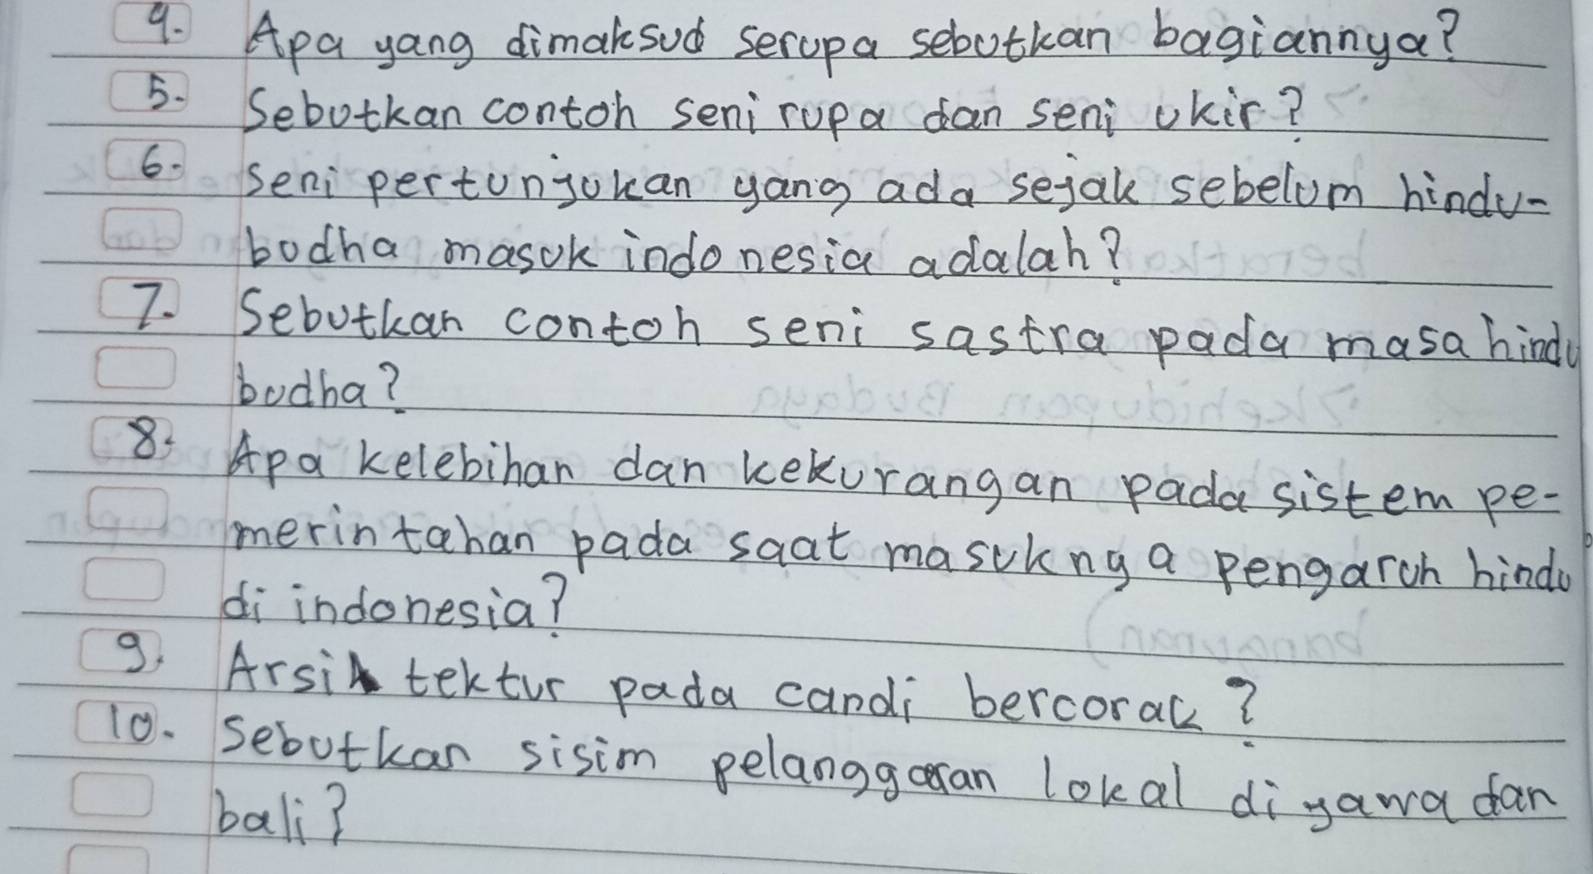 4. Apa yang dimaksud serupa sebutkan bagiannya?
5. Sebutkan contoh seni rupa dan seni ukir?
6. Seni pertunjukan yang ada sejak sebelum hindu-
budha masuk indonesia adalah?
7. Sebutkan contoh seni sastra pada masa hindu
budha?
8. Apa kelebihan dan kekurangan pada sistem pe-
merintahan pada saat masuknya pengaruh hindu
di indonesia?
9. Arsitektur pada candi bercorak?
10. Sebutkan sisim pelanggaran lokal di yawa dan
bali?